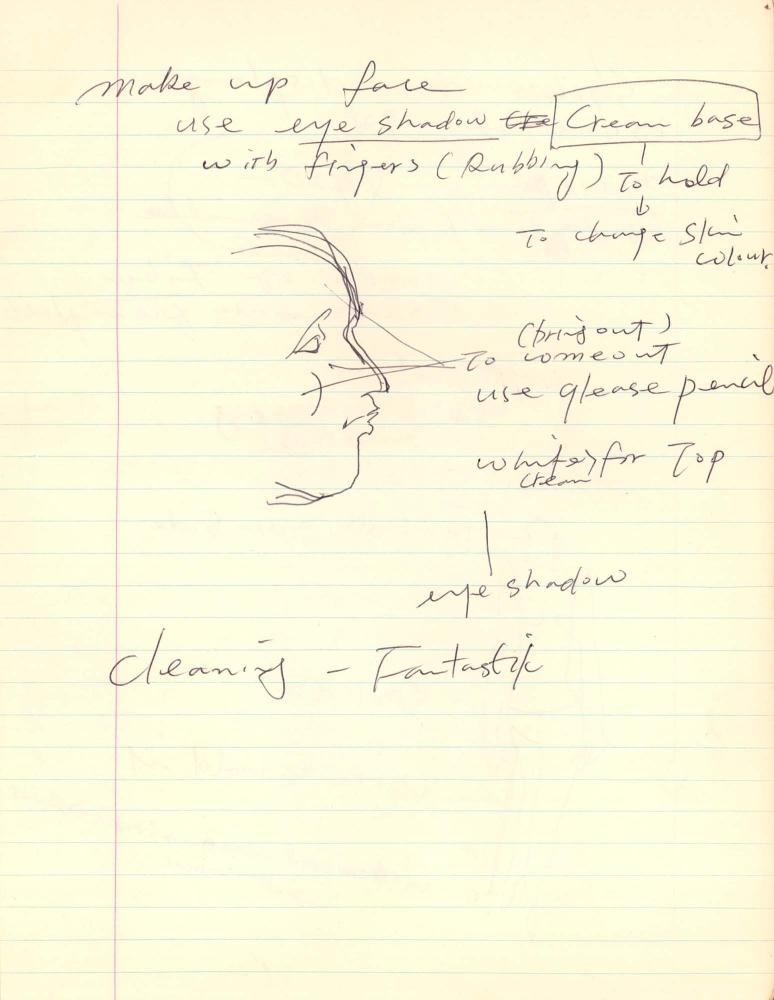 make up face
use eye shadow Cream base
with fingers (Rubbing) To hold
To change skin
colour.
(bring out)
To comeout
use glease pencil
white for Top
cream
eye shadow
Cleaning - Fantastik